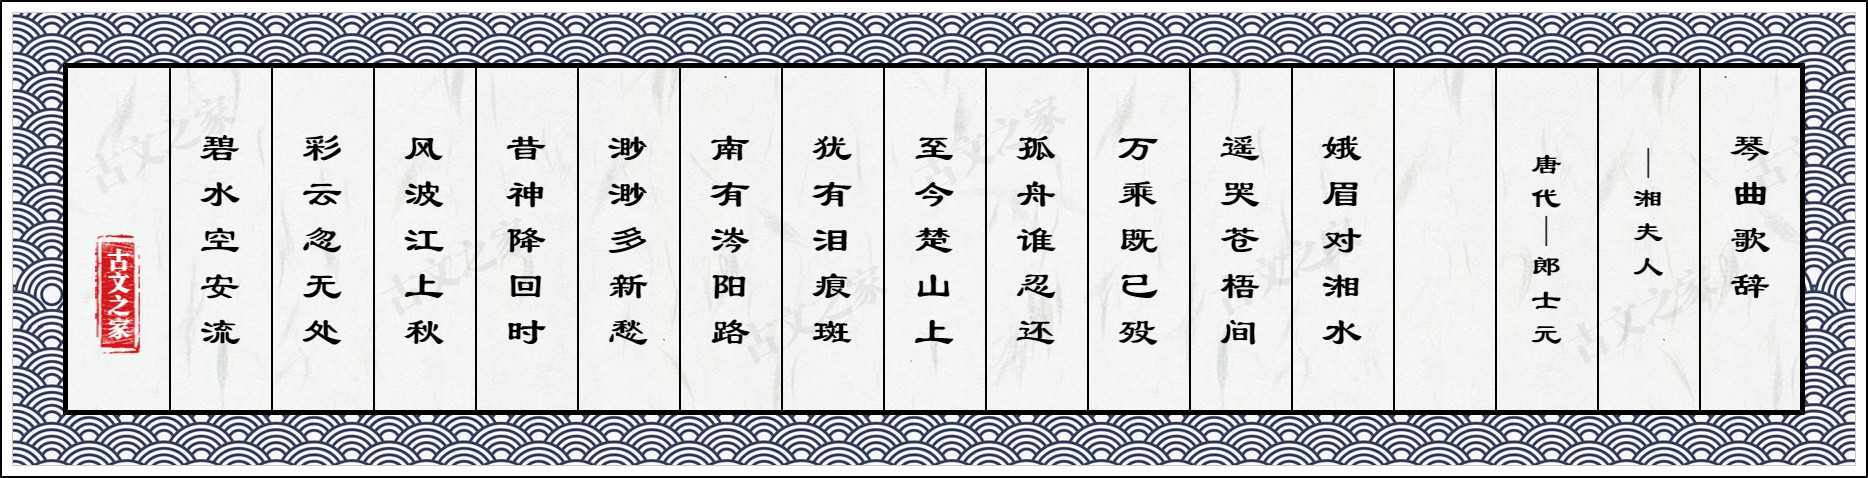 琴曲歌辞
—湘夫人
唐代—郎士元
娥眉对湘水
遥哭苍梧间
万乘既已殁
孤舟谁忍还
至今楚山上
犹有泪痕斑
南有涔阳路
渺渺多新愁
昔神降回时
风波江上秋
彩云忽无处
碧水空安流
古文之家